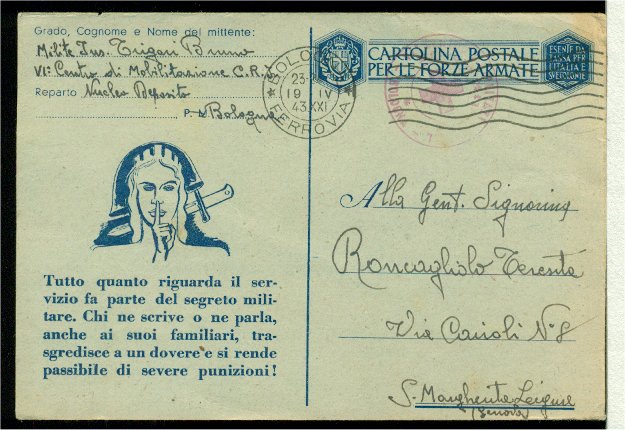 Grado, Cognome e Nome del mittente:
Milite Jus. Trigari Bruno
VI° Centro di Mobilitazione C.R.I.
Reparto Nucleo Deposito
P. M. Bologna
BOLO
23-
19 IV
43 XXI
FERROVIA
CARTOLINA POSTALE
PER LE FORZE ARMATE
ESENTE DA
TASSA PER
L'ITALIA E
SVE COLONIE
Tutto quanto riguarda il ser-
vizio fa parte del segreto mili-
tare. Chi ne scrive o ne parla,
anche ai suoi familiari, tra-
sgredisce a un dovere e si rende
passibile di severe punizioni!
Alla Gent. Signorina
Roncagliolo Teresita
Via Cairoli N°8
S. Margherita Ligure
(Genova)